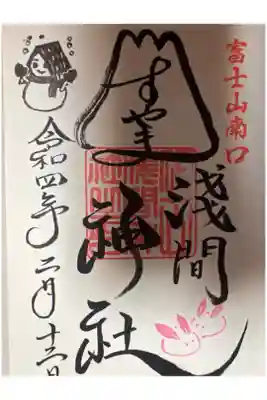 富士山南口
すやま
淺間
神社
令和四年二月十二日